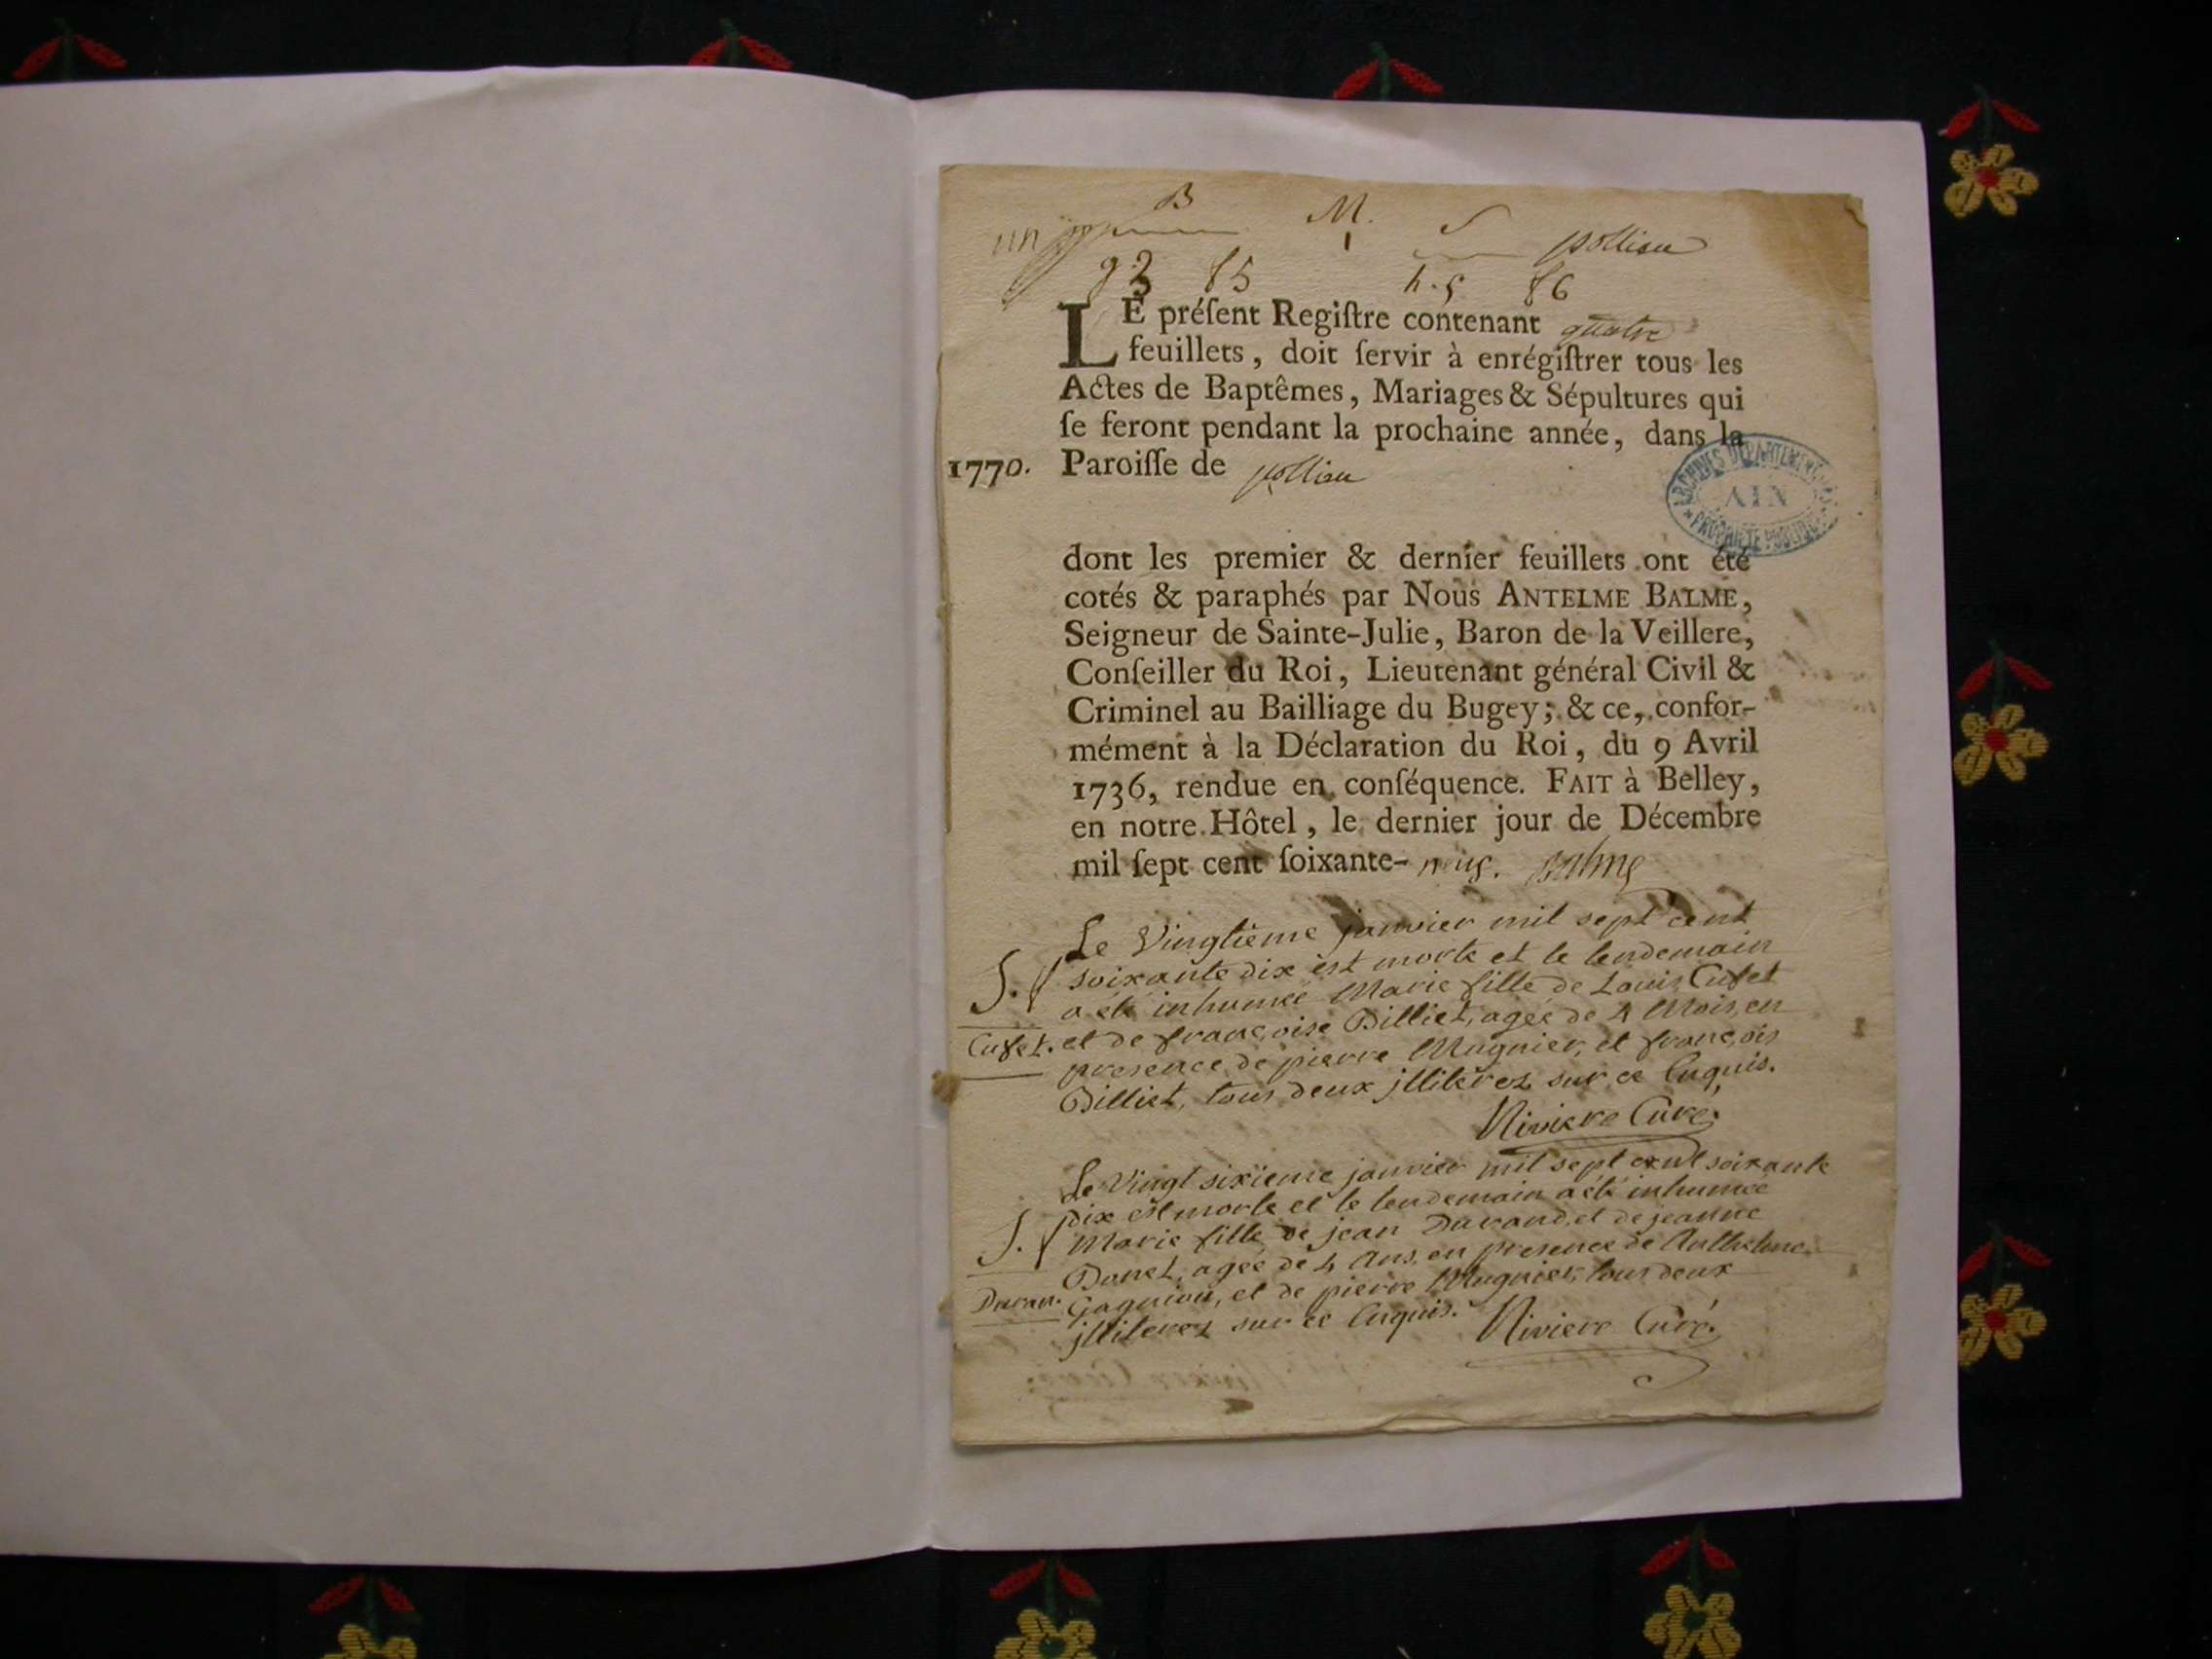 un B M. S pollieu
1
93 85 h.s 86
LE préſent Regiſtre contenant quatre
feuillets, doit ſervir à enrégiſtrer tous les
Actes de Baptêmes, Mariages & Sépultures qui
ſe feront pendant la prochaine année, dans la
1770. Paroiſſe de pollieu
ARCHIVES DEPARTEMENTALES
AIN
PROPRIÉTÉ PUBLIQUE
dont les premier & dernier feuillets ont été
cotés & paraphés par Nous ANTELME BALME,
Seigneur de Sainte-Julie, Baron de la Veillere,
Conſeiller du Roi, Lieutenant général Civil &
Criminel au Bailliage du Bugey; & ce, confor-
mément à la Déclaration du Roi, du 9 Avril
1736, rendue en conſéquence. FAIT à Belley,
en notre Hôtel, le dernier jour de Décembre
mil ſept cent ſoixante-neuf. Balme
Le Vingtieme janvier mil sept cent
S. soixante dix est morte et le lendemain
a été inhumée Marie fille de Louis Cufet
Cufet. et de françoise Billiet, agée de 4 Mois, en
presence de pierre Mugnier, et françois
Billiet, tous deux jlliterez sur ce Enquis.
Riviere Curé.
Le Vingt sixieme janvier mil sept cent soixante
dix est morte et le lendemain a été inhumée
S. Marie fille de jean Durand, et de jeanne
Donet, agée de 4 Ans, en presence de Anthelme
Duran. Gagniou, et de pierre Mugnier, tous deux
jlliterez sur ce Enquis. Riviere Curé.